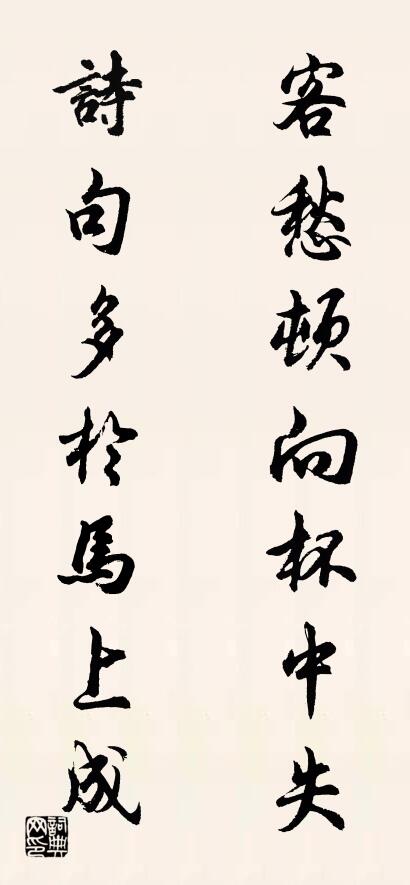 客愁頓向杯中失
詩句多於馬上成
詞典网印